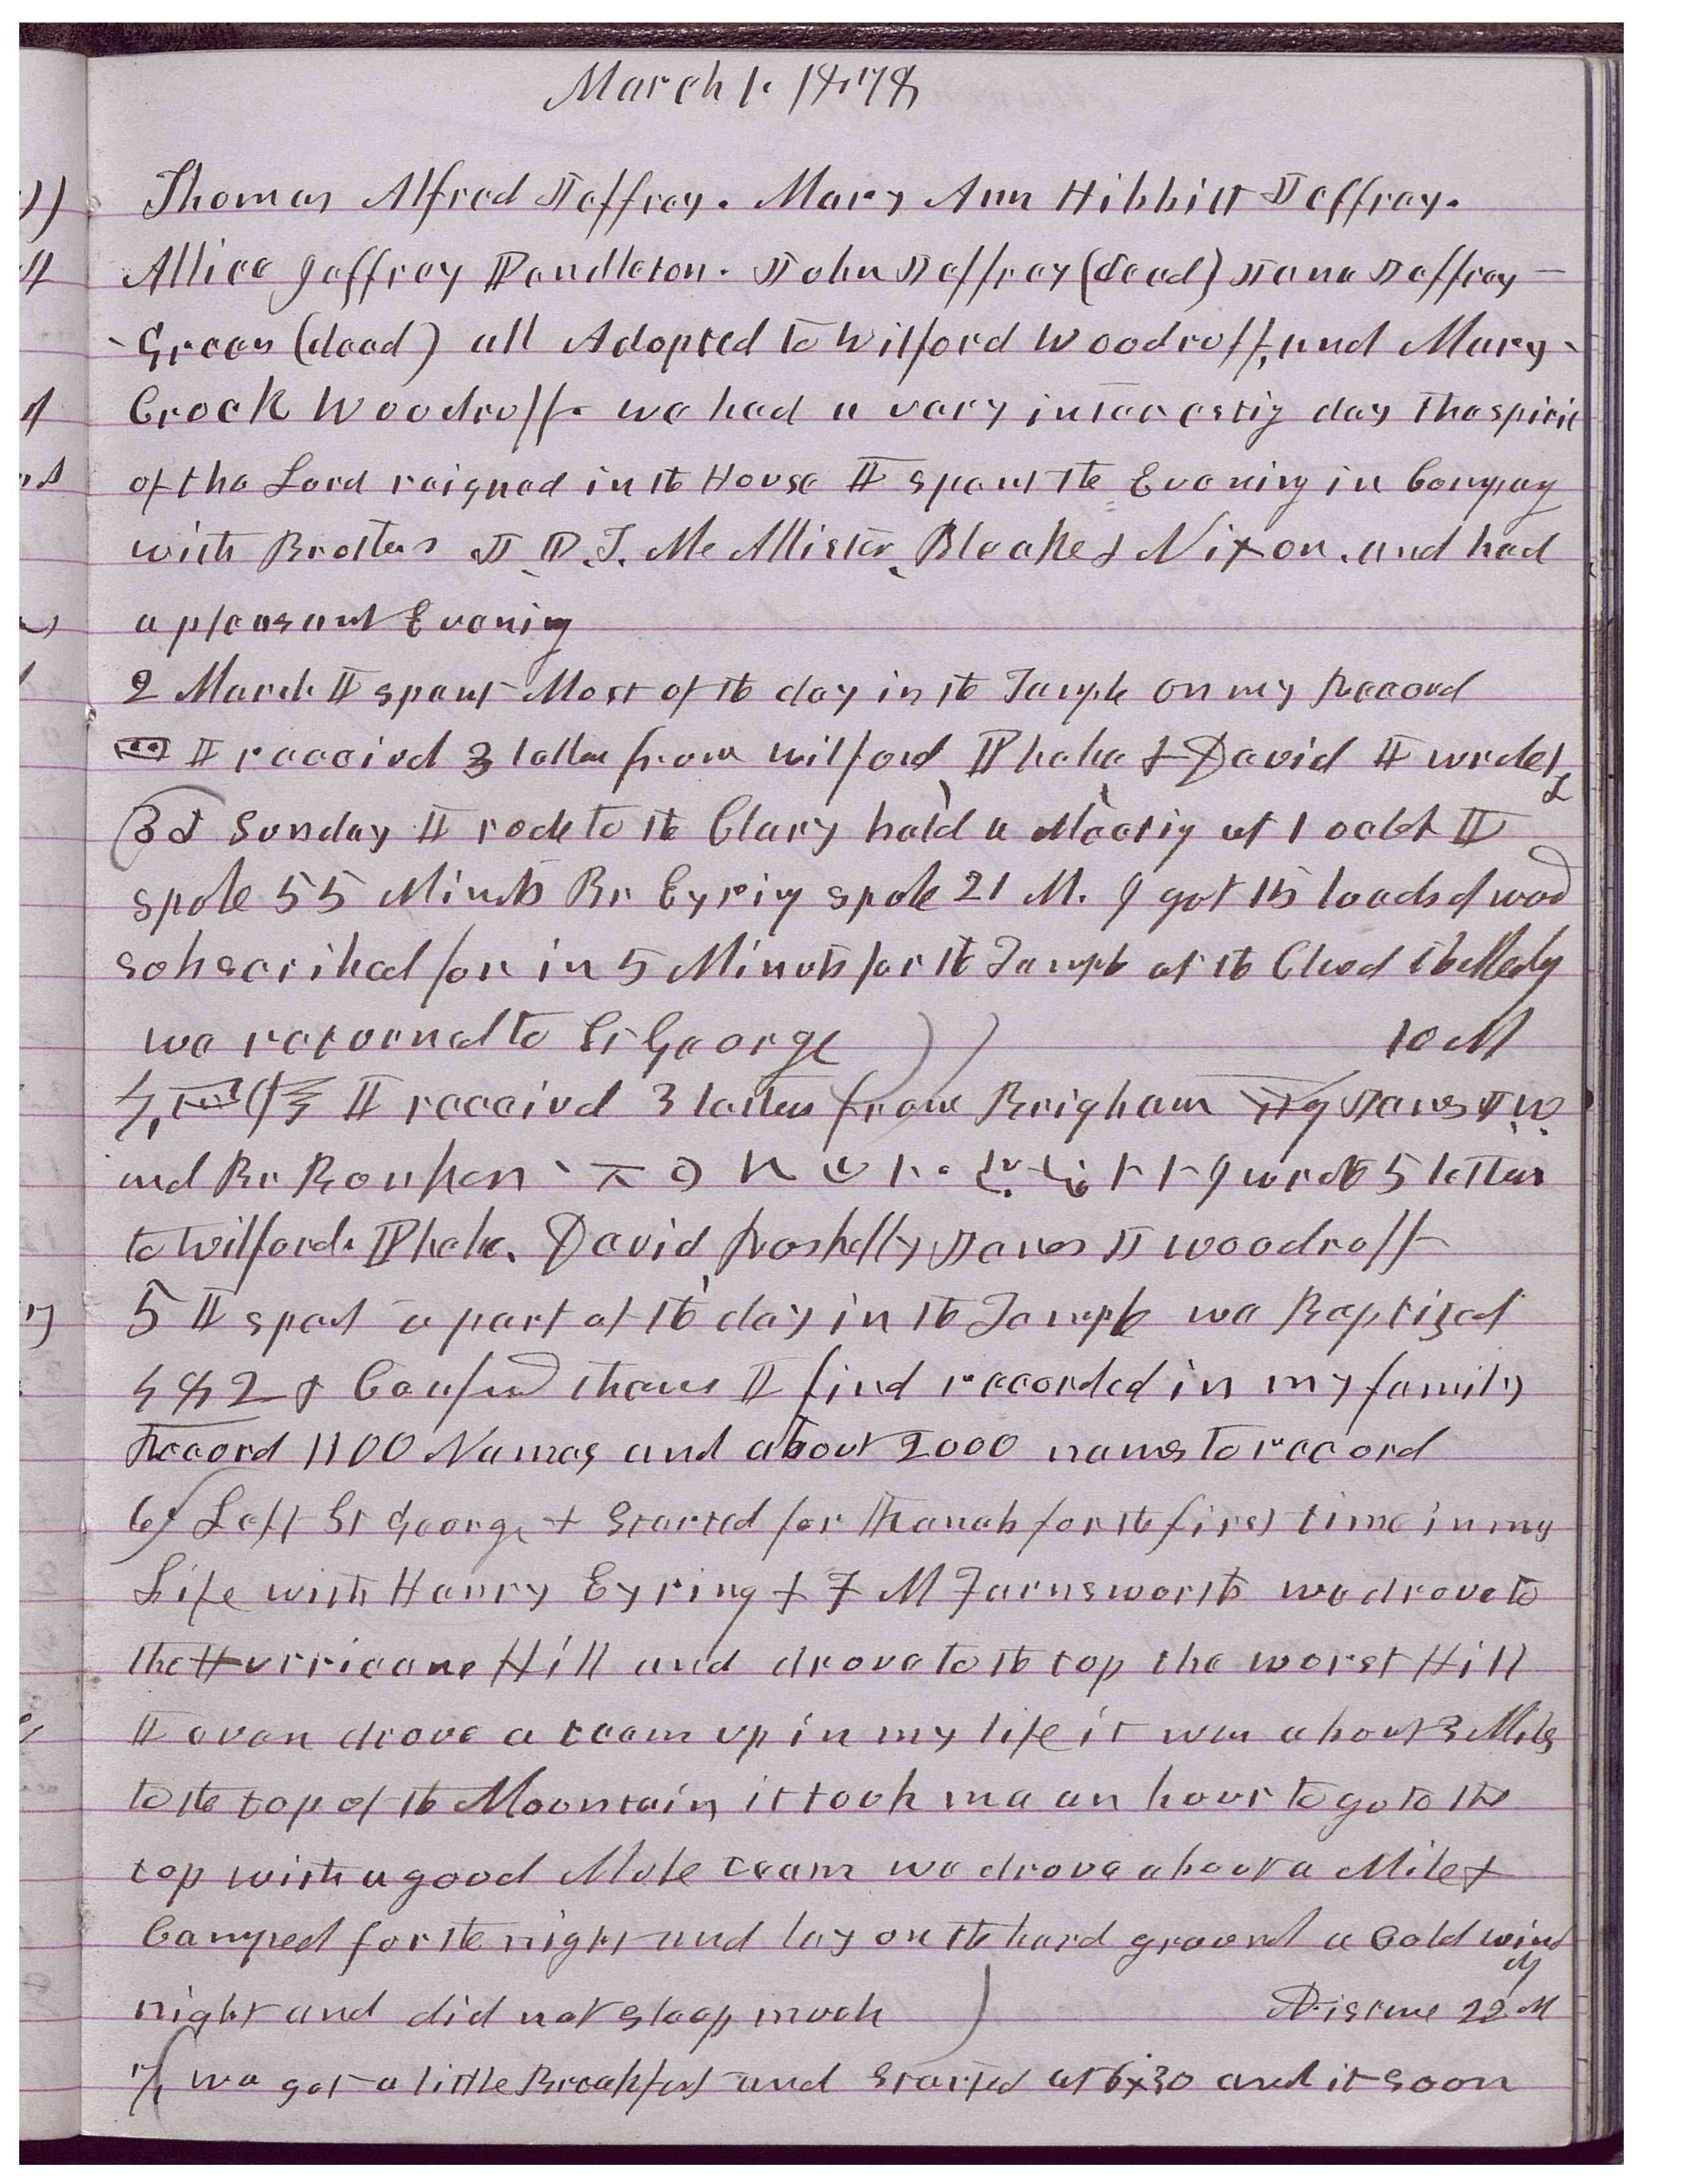 March 1. 1878
Thomas Alfred Jeffrey. Mary Ann Hibbitt Jeffrey.
Allice Jeffrey Pendleton. John Jeffrey (dead) Jane Jeffrey -
- Green (dead) all Adopted to Wilford Woodruff, and Mary -
Crock Woodruff. we had a very interestig day The spirit
of the Lord reigned in the House I spent the Evening in Company
with Brothers J. D. T. McAllister, Bleake & Nixon. and had
a pleasant Evening
2 March I spent Most of the day in the Temple on my Record
I receivd 3 letters from Wilford, Phebe & David I wrote
3d Sunday I rode to the Clary held a Meetig at 1 oclok I
spoke 55 Minuts Br Eyrig spoke 21 M. I got 15 loads of wood
subscribed for in 5 Minuts for the Temple at the Close of the Meetig
we returned to St George 10 M
4, I receivd 3 letters from Brigham James J. W.
and Br I wrote 5 letters
to Wilford. Phebe. David James J Woodruff
5 I spent a part of the day in the Temple we Baptized
482 & Confirmd them I find recorded in my family
Record 1100 Names and about 2000 names to record
6, Left St George & Started for Kanab for the first time in my
Life with Henry Eyring & F M Farnsworth we drove to
the Hurricane Hill and drove to the top the worst Hill
I ever drove a team up in my life it was about 3 Miles
to the top of the Mountain, it took me an hour to go to the
top with a good Mule team we drove about a Mile &
Camped for the night and lay on the hard ground a Cold windy
night and did not sleep much Distance 22 M
7, we got a little Breakfast and started at 6x30 and it soon